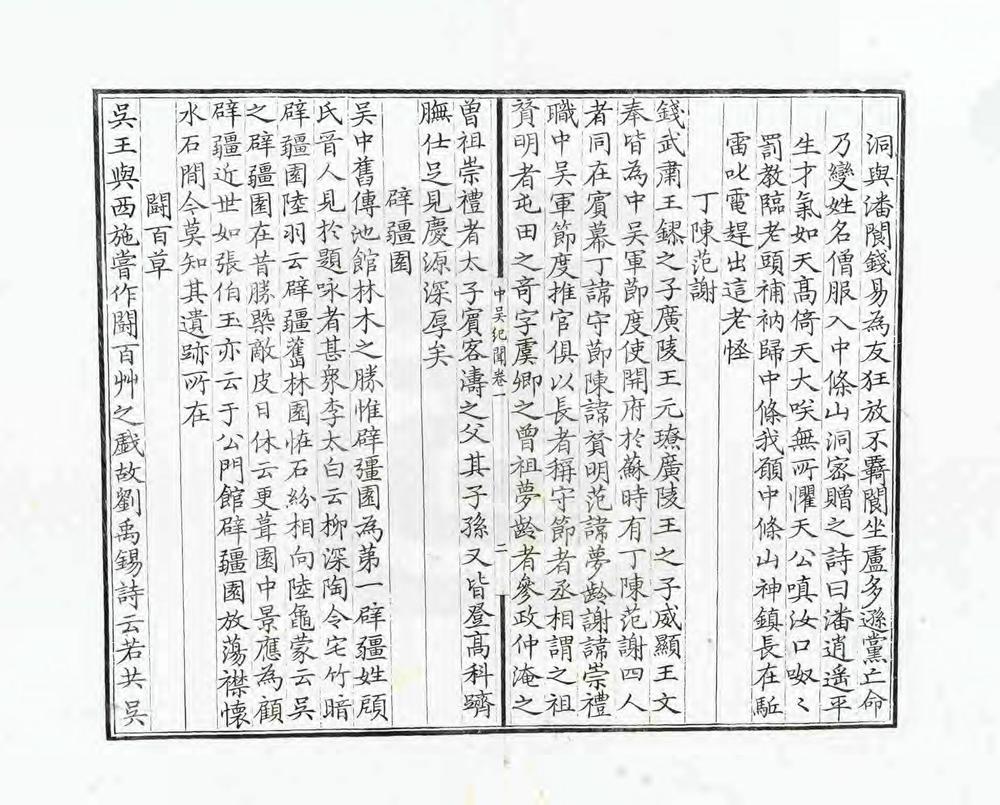 洞與潘閬錢易為友狂放不覊閬坐盧多遜黨亡命
乃變姓名僧服入中條山洞密贈之詩曰潘逍遥平
生才氣如天髙倚天大咲無所懼天公嗔汝口呶〻
罰教臨老頭補衲歸中條我願中條山神鎮長在駈
雷叱電趕出這老怪
丁陳范謝
錢武肅王鏐之子廣陵王元璙廣陵王之子威顯王文
奉皆為中吳軍節度使開府於蘇時有丁陳范謝四人
者同在賓幕丁諱守節陳諱贊明范諱夢齡謝諱崇禮
職中吳軍節度推官俱以長者稱守節者丞相謂之祖
贊明者屯田之竒字虞卿之曾祖夢齡者參政仲淹之
中吳紀聞卷一
二
曾祖崇禮者太子賓客濤之父其子孫又皆登髙科躋
膴仕足見慶源深厚矣
辟疆園
吳中舊傳池館林木之勝惟辟疆園為第一辟疆姓顧
氏晉人見於題咏者甚衆李太白云柳深陶令宅竹暗
辟疆園陸羽云辟疆舊林園恠石紛相向陸龜蒙云吳
之辟疆園在昔勝槩敵皮日休云更葺園中景應為顧
辟疆近世如張伯玉亦云于公門館辟疆園放蕩襟懷
水石間今莫知其遺跡所在
鬪百草
吳王與西施嘗作鬪百艸之戲故劉禹錫詩云若共吳